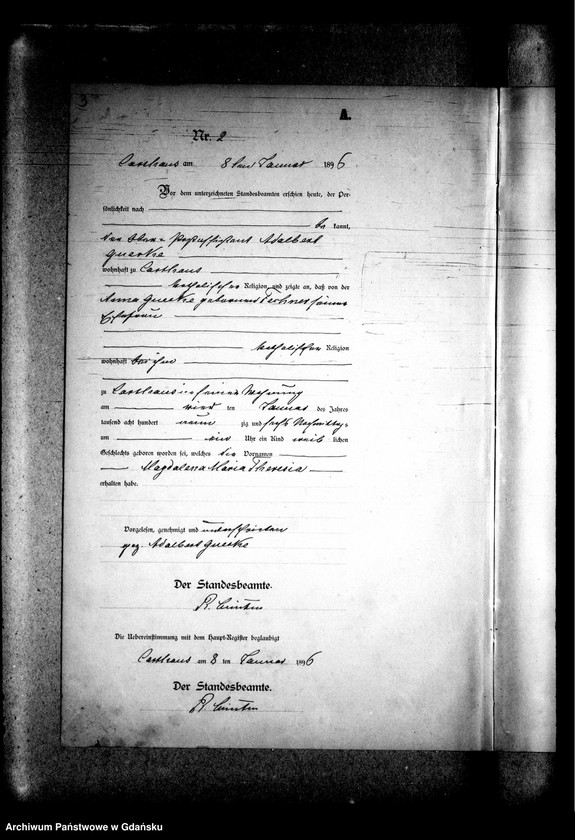 3
A.
Nr. 2
Carthaus am 8 ten Januar 1896
Vor dem unterzeichneten Standesbeamten erschien heute, der Per-
sönlichkeit nach
be kannt,
der Ober-Postassistent Adalbert
Querke
wohnhaft zu Carthaus
katholischer Religion, und zeigte an, daß von der
Anna Quecke geborenen seiner
Ehefrau
katholischer Religion
wohnhaft bei ihm
zu Carthaus in seiner Wohnung
am vier ten Januar des Jahres
tausend acht hundert neun zig und sechs Nachmittags
um ein Uhr ein Kind weib lichen
Geschlechts geboren worden sei, welches die Vornamen
Magdalena Maria Theresia
erhalten habe.
Vorgelesen, genehmigt und unterschrieben
gez. Adalbert Quecke
Der Standesbeamte.
Die Uebereinstimmung mit dem Haupt-Register beglaubigt
Carthaus am 8 ten Januar 1896
Der Standesbeamte.
Archiwum Państwowe w Gdańsku